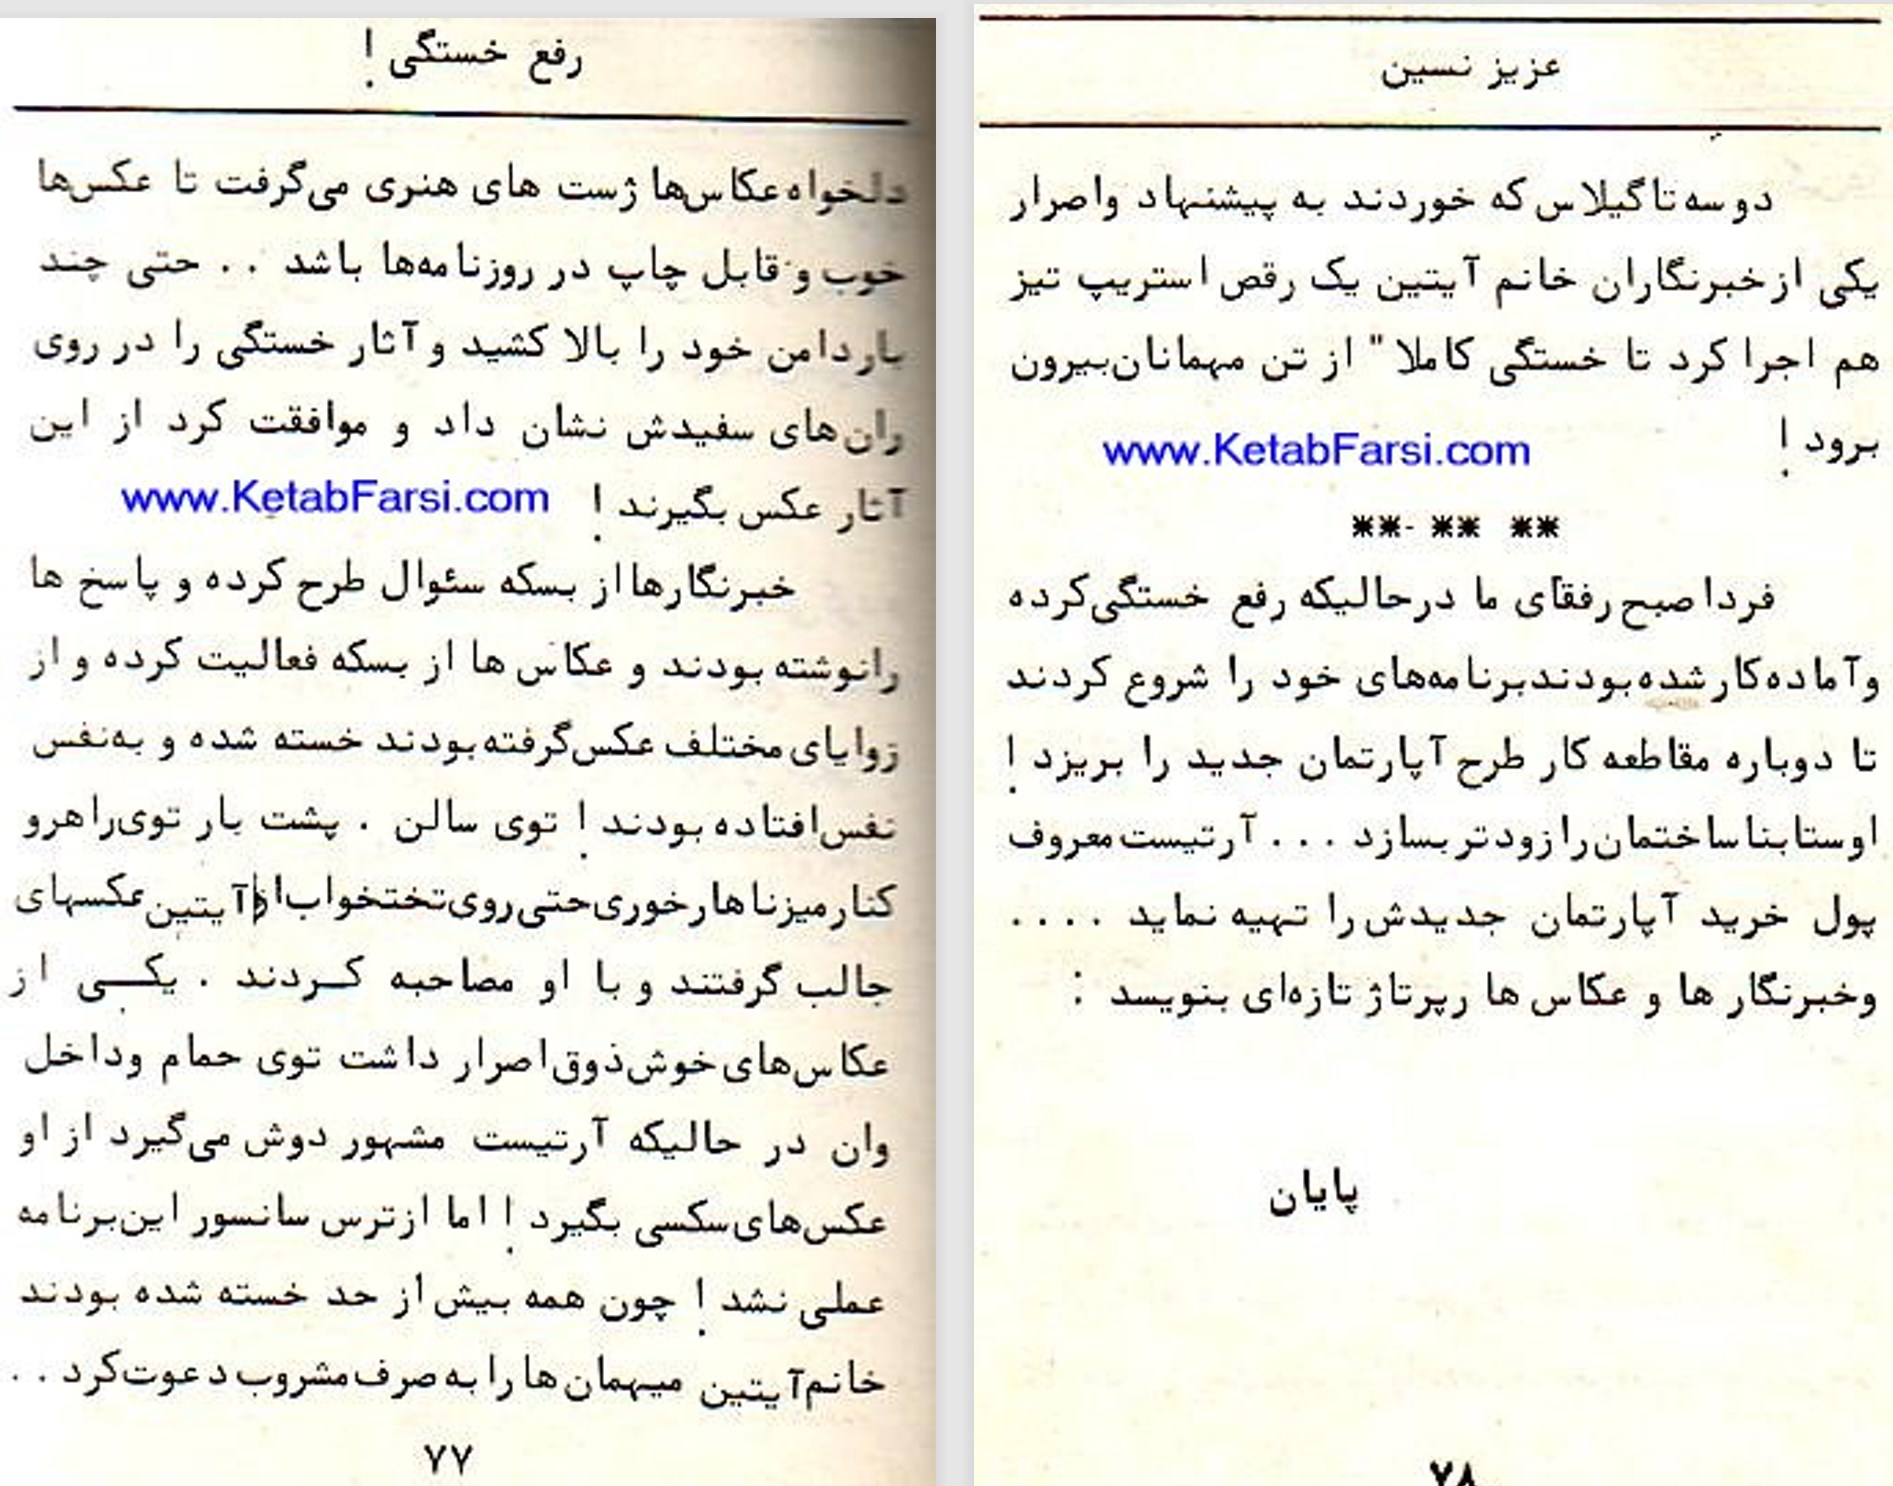 رفع خستگی !
دلخواه عکاس‌ها ژست های هنری می‌گرفت تا عکس‌ها
خوب و قابل چاپ در روزنامه‌ها باشد . . حتی چند
بار دامن خود را بالا کشید و آثار خستگی را در روی
ران‌های سفیدش نشان داد و موافقت کرد از این
آثار عکس بگیرند ! www.KetabFarsi.com
خبرنگارها از بسکه سئوال طرح کرده و پاسخ ها
رانوشته بودند و عکاس ها از بسکه فعالیت کرده و از
زوایای مختلف عکس گرفته بودند خسته شده و به‌نفس
نفس افتاده بودند ! توی سالن . پشت بار توی راهرو
کنار میزناهارخوری حتی روی تختخواب آیتین عکسهای
جالب گرفتند و با او مصاحبه کردند . یکی از
عکاس‌های خوش‌ذوق اصرار داشت توی حمام وداخل
وان در حالیکه آرتیست مشهور دوش می‌گیرد از او
عکس‌های سکسی بگیرد ! اما ازترس سانسور این برنامه
عملی نشد ! چون همه بیش از حد خسته شده بودند
خانم آیتین میهمان ها را به صرف مشروب دعوت کرد . .
۷۷
عزیز نسین
دو سه تا گیلاس که خوردند به پیشنهاد واصرار
یکی از خبرنگاران خانم آیتین یک رقص استریپ تیز
هم اجرا کرد تا خستگی کاملا" از تن مهمانان بیرون
برود ! www.KetabFarsi.com
** ** - **
فردا صبح رفقای ما درحالیکه رفع خستگی کرده
وآماده کار شده بودند برنامه‌های خود را شروع کردند
تا دوباره مقاطعه کار طرح آپارتمان جدید را بریزد !
اوستا بنا ساختمان را زودتر بسازد . . . آرتیست معروف
پول خرید آپارتمان جدیدش را تهیه نماید . . . .
وخبرنگار ها و عکاس ها رپرتاژ تازه‌ای بنویسد :
پایان
۷۸